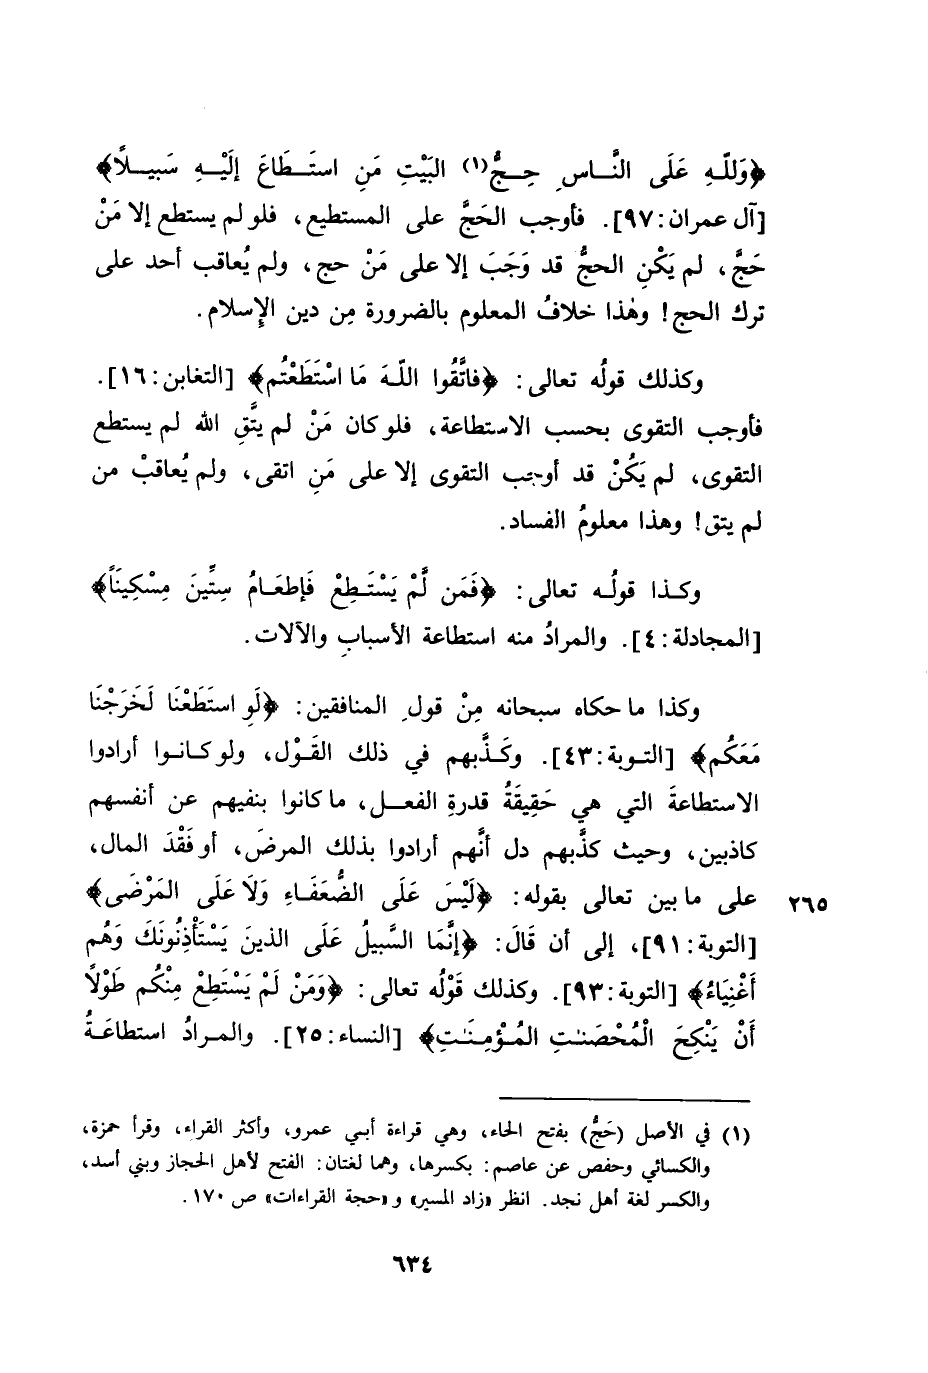 ﴿وَللّهِ عَلَى النَّاسِ حِجُّ(١) البَيْتِ مَنِ استَطَاعَ إلَيْهِ سَبيلاً﴾
[آل عمران:٩٧]. فأوجب الحَجَّ على المستطيع، فلو لم يستطع إلا مَنْ
حَجَّ، لم يَكُنِ الحجُّ قد وَجَبَ إلا على مَنْ حج، ولم يُعاقب أحد على
ترك الحج! وهٰذا خلافُ المعلوم بالضرورة مِن دين الإسلام.
وكذلك قولُه تعالى: ﴿فاتَّقُوا اللّهَ مَا اسْتَطَعْتُم﴾ [التغابن:١٦].
فأوجب التقوى بحسب الاستطاعة، فلو كان مَنْ لم يتَّقِ الله لم يستطع
التقوى، لم يَكُنْ قد أوجب التقوى إلا على مَنِ اتقى، ولم يُعاقبْ من
لم يتق! وهذا معلومُ الفساد.
وكذا قولُه تعالى: ﴿فَمَن لَّمْ يَسْتَطِعْ فَإطعَامُ سِتِّينَ مِسْكِينَاً﴾
[المجادلة:٤]. والمرادُ منه استطاعة الأسبابِ والآلات.
وكذا ما حكاه سبحانه مِنْ قولِ المنافقين: ﴿لَوِ استَطَعْنَا لَخَرَجْنَا
مَعَكُم﴾ [التوبة:٤٣]. وكَذَّبهم في ذلك القَوْل، ولو كانوا أرادوا
الاستطاعةَ التي هي حَقِيقَةُ قدرةِ الفعل، ما كانوا بنفيهم عن أنفسهم
كاذبين، وحيث كذَّبهم دل أنَّهم أرادوا بذلك المرضَ، أو فَقْدَ المال،
على ما بين تعالى بقوله: ﴿لَيْسَ عَلَى الضُّعَفَاءِ وَلَا عَلَى المَرْضَى﴾ ٢٦٥
[التوبة:٩١]، إلى أن قَالَ: ﴿إنَّمَا السَّبيلُ عَلَى الذينَ يَسْتَأْذِنُونَكَ وَهُم
أَغْنِيَاءُ﴾ [التوبة:٩٣]. وكذلك قَوْلُه تعالى: ﴿وَمَنْ لَمْ يَسْتَطِعْ مِنْكُم طَوْلاً
أَنْ يَنْكِحَ الْمُحْصَنٰتِ المُؤْمِنَٰتِ﴾ [النساء:٢٥]. والمرادُ استطاعَةُ
(١) في الأصل (حَجُّ) بفتح الحاء، وهي قراءة أبي عمرو، وأكثر القراء، وقرأ حمزة،
والكسائي وحفص عن عاصم: بكسرها، وهما لغتان: الفتح لأهل الحجاز وبني أسد،
والكسر لغة أهل نجد. انظر «زاد المسير» و«حجة القراءات» ص ١٧٠.
٦٣٤